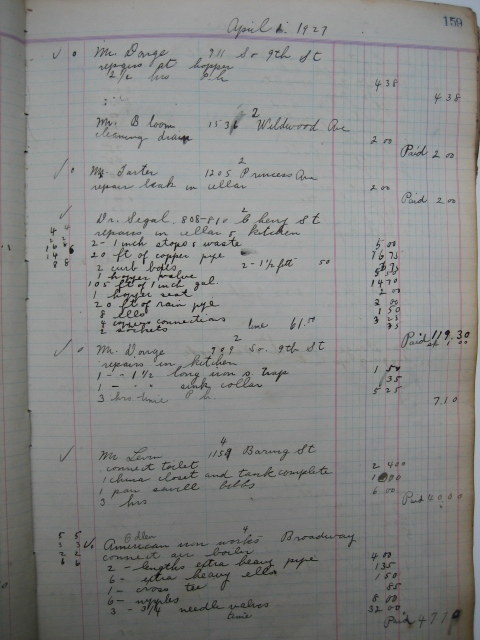 April 1. 1927 159
Mr. Dorge 911 So 9th St
repairs at hopper
2 1/2 hrs P.h 4 38
4 38
2
Mr. Bloom 1536 Wildwood Ave
cleaning drain 2 00
Paid 2 00
2
Mr. 1205 Princess Ave
repair leak in cellar 2 00
Paid 2 00
2
Dr. Segal. 808-810 Cherry St
repairs in cellar & kitchen
2 - 1 inch stops & waste 5 00
20 ft of copper pipe
2 curb boxes 2 - 1 1/2 50
1 valve
105 ft of 1 inch gal. 14 70
1 seat 2 00
20 ft of rain pipe 3 00
8 ells 1 50
4 connections 3 25
2 sockets time 61.50 35
Paid 119.30
2
Mr. Dorge 909 So. 9th St
repairs in kitchen
1 - 1 1/2 long iron s. trap 1 50
1 - " " sink collar 35
3 hrs time P h 5 25
7.10
4
Mr Levin 1159 Baring St
connect toilet
1 china closet and tank complete 2 4 00
1 pan bibbs
3 hrs 6 00
Paid 40 00
4
American iron works Broadway
connect air boiler
2 - lengths extra heavy pipe 4 00
6 - extra heavy ells 1 35
1 - cross tee 1 50
6 - nipples 85
3 - 3/4 needle valves 8 00
time 32 00
Paid 47 70